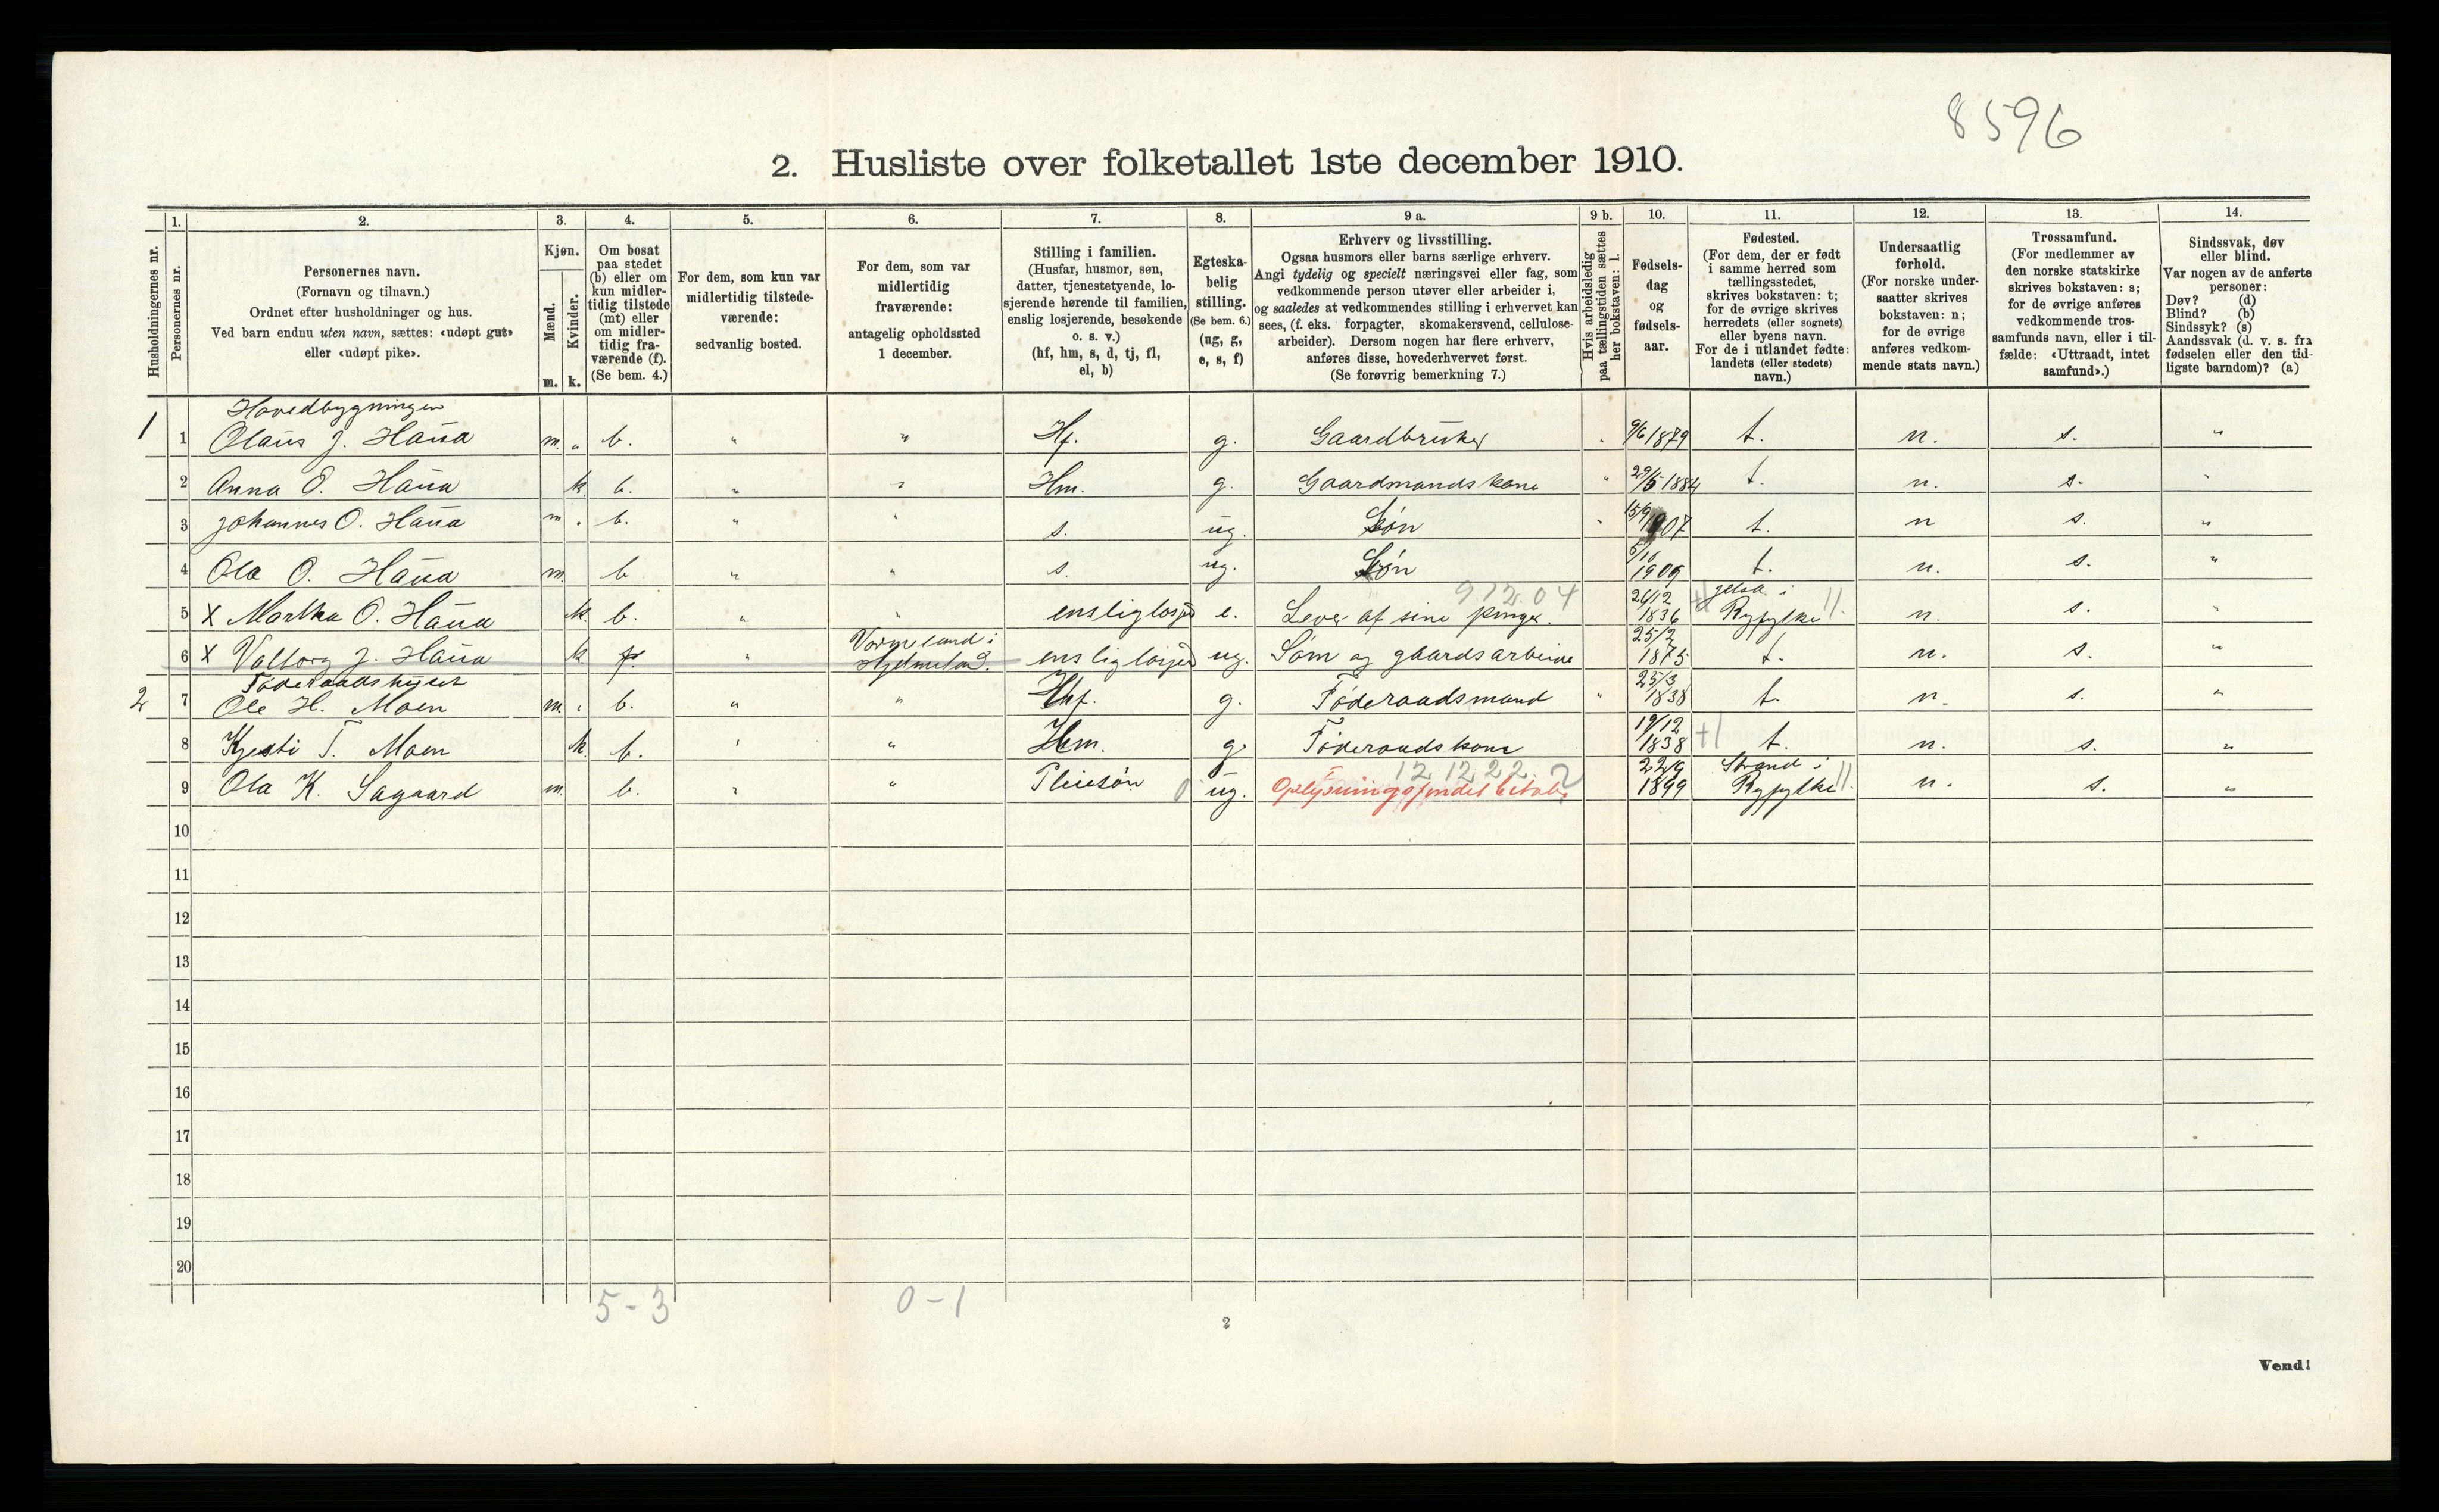 8596
2. Husliste over folketallet 1ste december 1910.
1. 2. 3. 4. 5. 6. 7. 8. 9 a. 9 b. 10. 11. 12. 13. 14.
Husholdningernes nr.
Personernes nr.
Personernes navn.
(Fornavn og tilnavn.)
Ordnet efter husholdninger og hus.
Ved barn endnu uten navn, sættes: «udøpt gut»
eller «udøpt pike».
Kjøn.
Mænd.
Kvinder.
m. k.
Om bosat
paa stedet
(b) eller om
kun midler-
tidig tilstede
(mt) eller
om midler-
tidig fra-
værende (f).
(Se bem. 4.)
For dem, som kun var
midlertidig tilstede-
værende:
sedvanlig bosted.
For dem, som var
midlertidig
fraværende:
antagelig opholdssted
1 december.
Stilling i familien.
(Husfar, husmor, søn,
datter, tjenestetyende, lo-
sjerende hørende til familien,
enslig losjerende, besøkende
o. s. v.)
(hf, hm, s, d, tj, fl,
el, b)
Egteska-
belig
stilling.
(Se bem. 6.)
(ug, g,
e, s, f)
Erhverv og livsstilling.
Ogsaa husmors eller barns særlige erhverv.
Angi tydelig og specielt næringsvei eller fag, som
vedkommende person utøver eller arbeider i,
og saaledes at vedkommendes stilling i erhvervet kan
sees, (f. eks. forpagter, skomakersvend, cellulose-
arbeider). Dersom nogen har flere erhverv,
anføres disse, hovederhvervet først.
(Se forøvrig bemerkning 7.)
Hvis arbeidsledig
paa tællingstiden sættes
her bokstaven: l.
Fødsels-
dag
og
fødsels-
aar.
Fødested.
(For dem, der er født
i samme herred som
tællingsstedet,
skrives bokstaven: t;
for de øvrige skrives
herredets (eller sognets)
eller byens navn.
For de i utlandet fødte:
landets (eller stedets)
navn.)
Undersaatlig
forhold.
(For norske under-
saatter skrives
bokstaven: n;
for de øvrige
anføres vedkom-
mende stats navn.)
Trossamfund.
(For medlemmer av
den norske statskirke
skrives bokstaven: s;
for de øvrige anføres
vedkommende tros-
samfunds navn, eller i til-
fælde: «Uttraadt, intet
samfund».)
Sindssvak, døv
eller blind.
Var nogen av de anførte
personer:
Døv? (d)
Blind? (b)
Sindssyk? (s)
Aandssvak (d. v. s. fra
fødselen eller den tid-
ligste barndom)? (a)
Hovedbygningen
1 1 Olaus J. Haua m. „ b. „ „ Hf. g. Gaardbruker „ 9/6 1879 t. n. s. „
2 Anna O. Haua k b. „ „ Hm. g. Gaardmandskone „ 29/5 1884 t. n. s. „
3 Johannes O. Haua m „ b. „ „ s. ug. Søn „ 15/9 1907 t. n s. „
4 Ola O. Haua m. b „ „ s. ug. Søn 5/10 1909 t. n. s. „
9.12.04
5 X Martha O. Haua k. b. „ „ enslig losje e. Lever af sine penger. 24/12 1836 Jelsa i Ryfylke n. s. „
6 X Valborg J. Haua k f. „ Vormeland i Hjelmeland. enslig losjer ug. Søm og gaardsarbeide 25/2 1875 t. n. s. „
Føderaadshuset
2 7 Ole H. Moen m. „ b. „ „ Hf. g. Føderaadsmand „ 25/3 1838 t. n. s. „
8 Kjersti T. Moen k b. „ „ Hm. g. Føderaadskone 19/12 1838 t. n. s. „
12 12 22. 2
9 Ola K. Sagaard m. b. „ „ Pleiesøn ug. 22/9 1899 Strand i Ryfylke n. s. „
10
11
12
13
14
15
16
17
18
19
20
5-3 0-1
2
Vend!